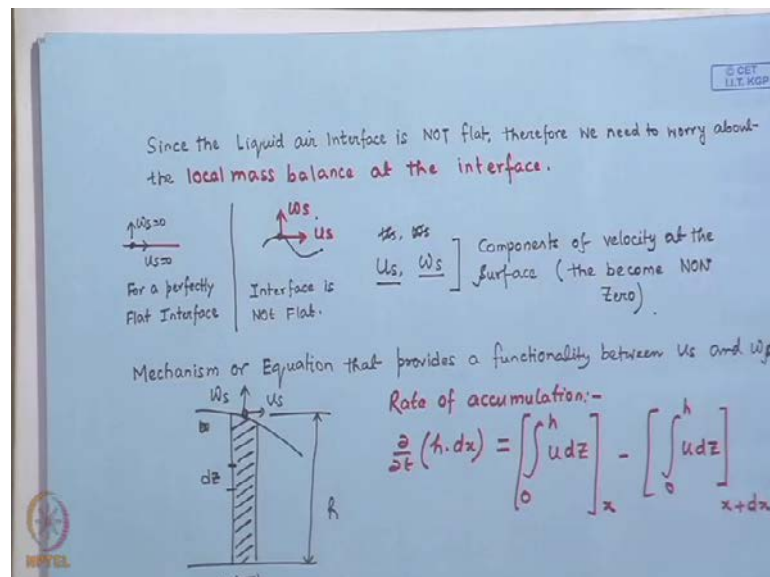 © CET
I.I.T. KGP
Since the Liquid air Interface is NOT flat, therefore we need to worry about
the local mass balance at the interface.
Ws=0
Us=0
For a perfectly
Flat Interface
Ws
Us
Interface is
NOT Flat.
Us, Ws
Components of velocity at the
surface (the become NON
Zero).
Mechanism or Equation that provides a functionality between Us and Ws
Ws
Us
dz
h
Rate of accumulation:-
∂/∂t (h.dx) = [∫₀ʰ u dz]ₓ - [∫₀ʰ u dz]ₓ₊dx
NPTEL